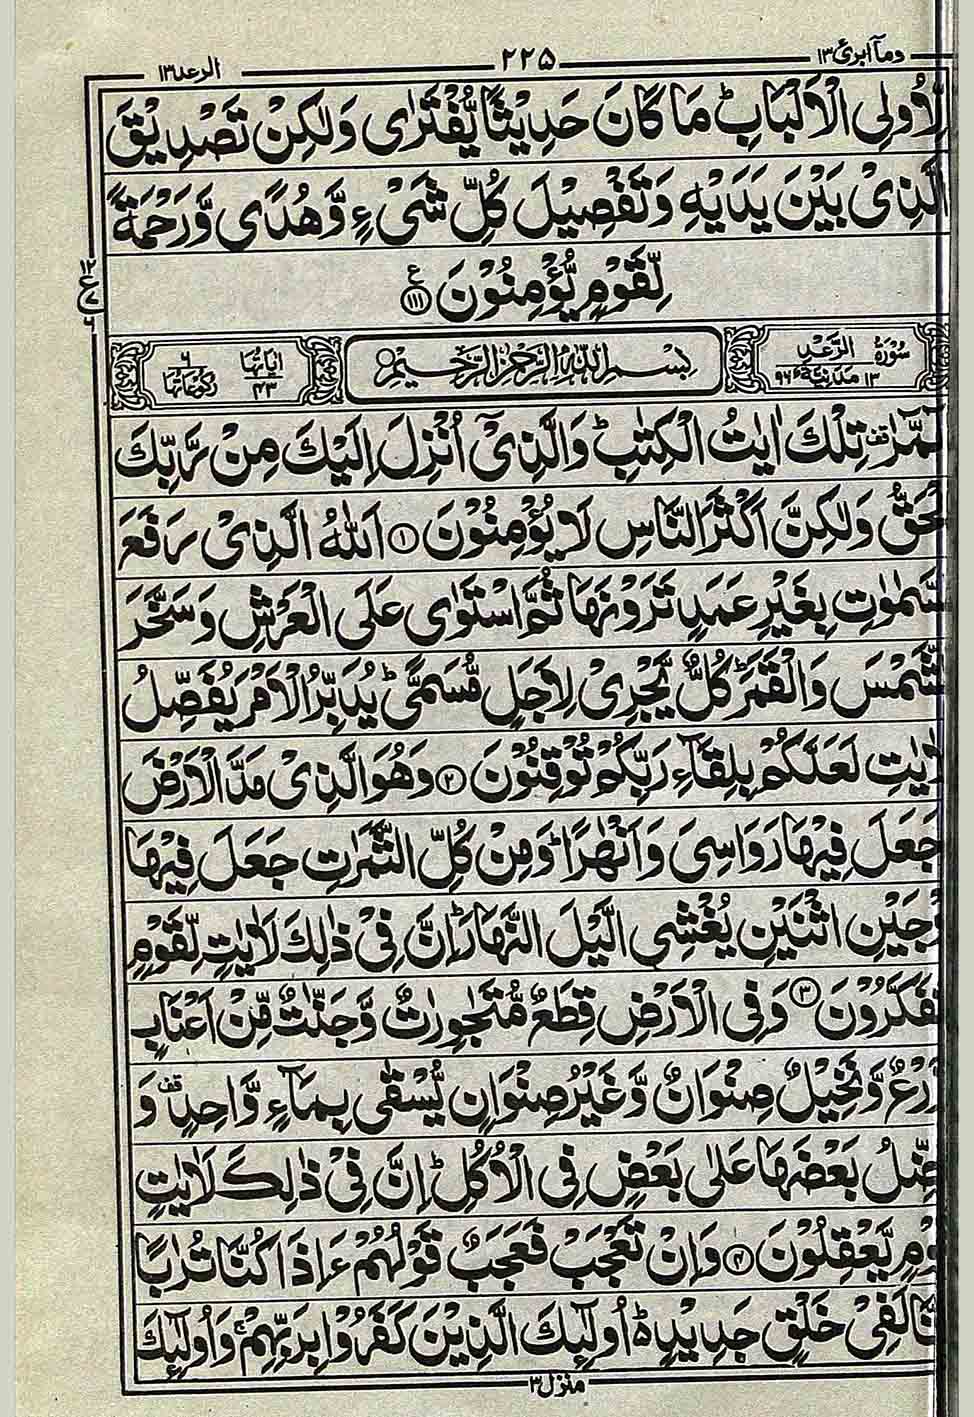 وما ابرئ ١٣ ٢٢٥ الرعد ١٣
لِّاُولِی الْاَلْبَابِ ؕ مَا كَانَ حَدِیْثًا یُّفْتَرٰی وَلٰكِنْ تَصْدِیْقَ
الَّذِیْ بَیْنَ یَدَیْهِ وَتَفْصِیْلَ كُلِّ شَیْءٍ وَّهُدًی وَّرَحْمَةً
لِّقَوْمٍ یُّؤْمِنُوْنَ ﴿١١١﴾ ع
١٢ ع ٧ ٦
سُوْرَةُ الرَّعْدِ ١٣ مَدَنِیَّةٌ ٩٦ بِسْمِ اللّٰهِ الرَّحْمٰنِ الرَّحِیْمِ اٰیَاتُهَا ٤٣ رُكُوْعَاتُهَا ٦
الٓمّٓرٰ ۫ تِلْكَ اٰیٰتُ الْكِتٰبِ ؕ وَالَّذِیْۤ اُنْزِلَ اِلَیْكَ مِنْ رَّبِّكَ
الْحَقُّ وَلٰكِنَّ اَكْثَرَ النَّاسِ لَا یُؤْمِنُوْنَ ﴿١﴾ اَللّٰهُ الَّذِیْ رَفَعَ
السَّمٰوٰتِ بِغَیْرِ عَمَدٍ تَرَوْنَهَا ثُمَّ اسْتَوٰی عَلَی الْعَرْشِ وَسَخَّرَ
الشَّمْسَ وَالْقَمَرَ ؕ كُلٌّ یَّجْرِیْ لِاَجَلٍ مُّسَمًّی ؕ یُدَبِّرُ الْاَمْرَ یُفَصِّلُ
الْاٰیٰتِ لَعَلَّكُمْ بِلِقَآءِ رَبِّكُمْ تُوْقِنُوْنَ ﴿٢﴾ وَهُوَ الَّذِیْ مَدَّ الْاَرْضَ
جَعَلَ فِیْهَا رَوَاسِیَ وَاَنْهٰرًا ؕ وَمِنْ كُلِّ الثَّمَرٰتِ جَعَلَ فِیْهَا
زَوْجَیْنِ اثْنَیْنِ یُغْشِی الَّیْلَ النَّهَارَ ؕ اِنَّ فِیْ ذٰلِكَ لَاٰیٰتٍ لِّقَوْمٍ
یَّتَفَكَّرُوْنَ ﴿٣﴾ وَفِی الْاَرْضِ قِطَعٌ مُّتَجٰوِرٰتٌ وَّجَنّٰتٌ مِّنْ اَعْنَابٍ
زَرْعٌ وَّنَخِیْلٌ صِنْوَانٌ وَّغَیْرُ صِنْوَانٍ یُّسْقٰی بِمَآءٍ وَّاحِدٍ ۫ وَ
نُفَضِّلُ بَعْضَهَا عَلٰی بَعْضٍ فِی الْاُكُلِ ؕ اِنَّ فِیْ ذٰلِكَ لَاٰیٰتٍ
لِّقَوْمٍ یَّعْقِلُوْنَ ﴿٤﴾ وَاِنْ تَعْجَبْ فَعَجَبٌ قَوْلُهُمْ ءَاِذَا كُنَّا تُرٰبًا
ءَاِنَّا لَفِیْ خَلْقٍ جَدِیْدٍ ؕ اُولٰٓئِكَ الَّذِیْنَ كَفَرُوْا بِرَبِّهِمْ ۚ وَاُولٰٓئِكَ
منزل ٣